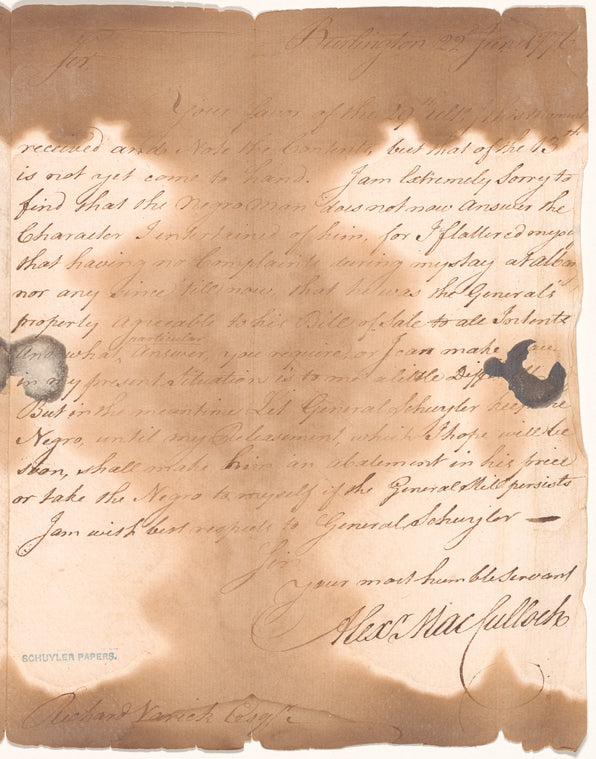 Burlington 22d June 1776
Sir
Your favor of the 29th Ult, I this moment
received and Note the Contents, but that of the 13th
is not yet come to hand. I am Extremely Sorry to
find that the Negro Man does not now Answer the
Character I entertained of him, for I flattered
that having no Complaints during my stay at Albany
nor any since till now, that he was the General's
property agreeable to his Bill of Sale to all Intents
And what particular Answer, you require, or I can make
in my present Situation is to me a little
But in the meantime Let General Schuyler keep the
Negro, until my Releasement, which I hope will be
soon, shall make him an abatement in his price
or take the Negro to myself if the General still persists
I am with best respects to General Schuyler —
Sir
Your most humble Servant
Alexr. MacCulloch
SCHUYLER PAPERS.
Richard Varick Esqr.